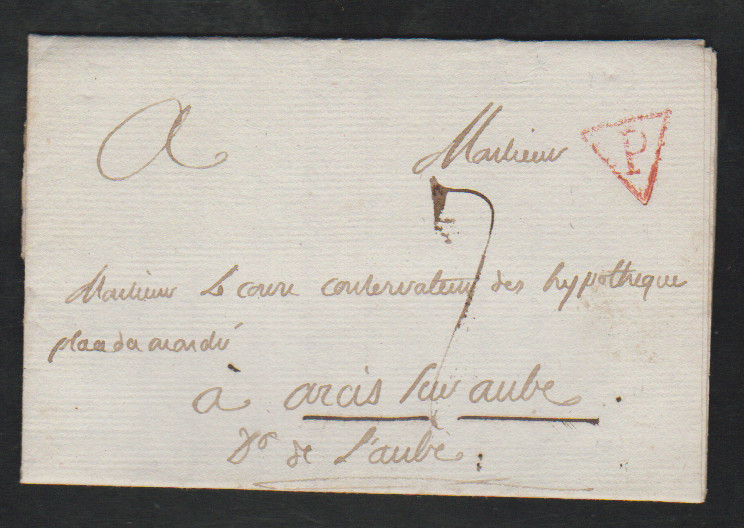 A Monsieur
P
7
Monsieur Le conservateur des hypotheque
place du marché
à arcis sur aube
Dt de L'aube